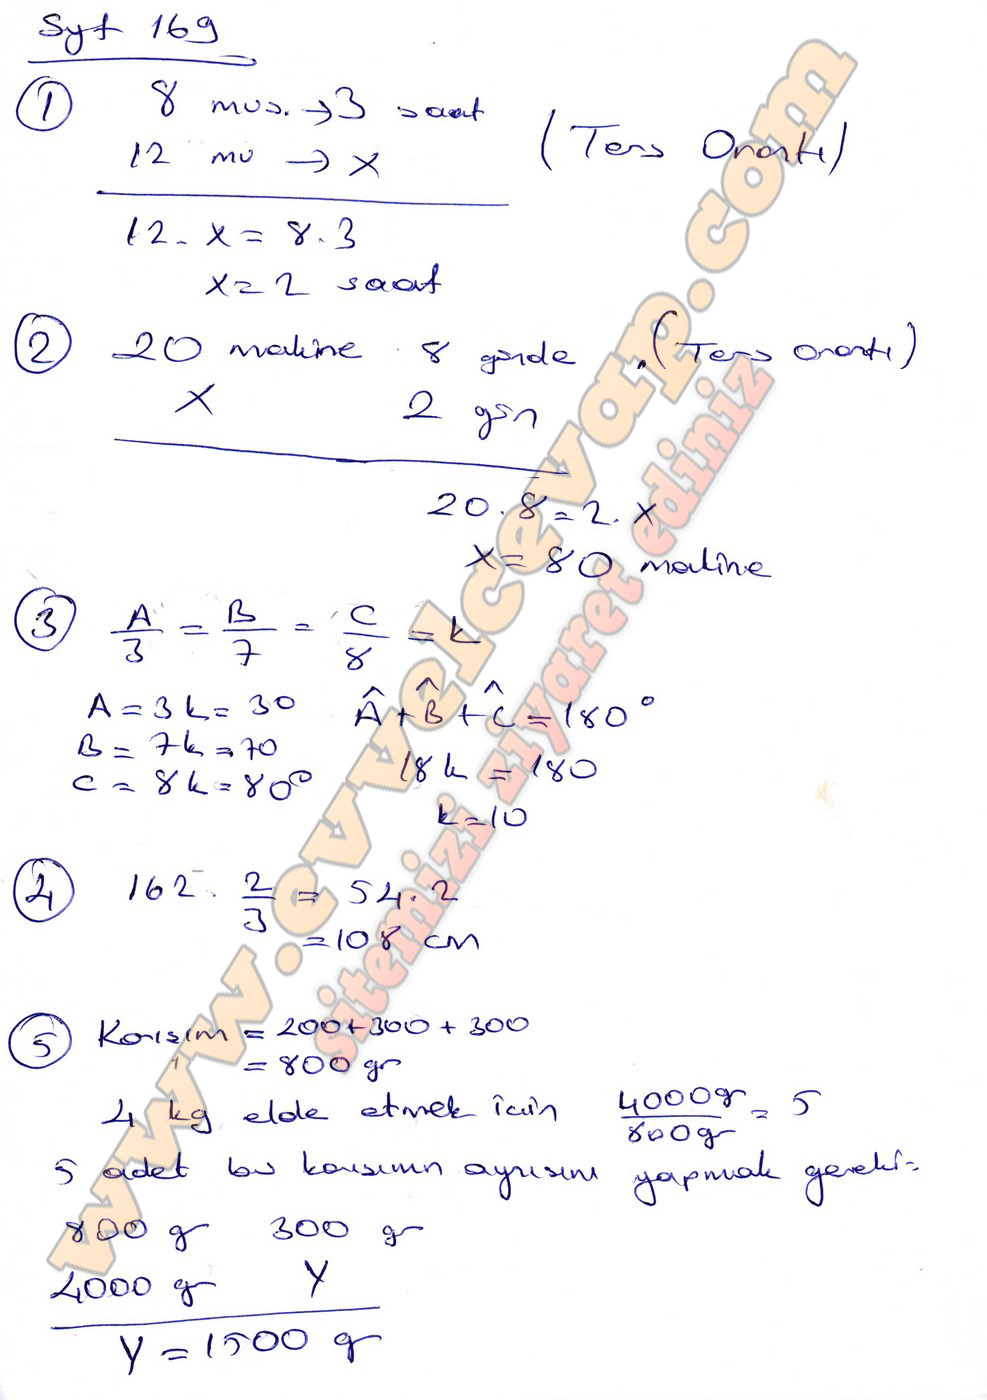 Syf 169
① 8 mus. → 3 saat
12 mu → x
(Ters Orantı)
12. x = 8.3
x = 2 saat
② 20 makine 8 günde (Ters orantı)
X 2 gün
20.8 = 2.x
x = 80 makine
③ A/3 = B/7 = C/8 = k
A = 3k = 30
B = 7k = 70
C = 8k = 80°
Â + B̂ + Ĉ = 180°
18k = 180
k = 10
④ 162 . 2/3 = 54.2
= 108 cm
⑤ Karışım = 200 + 300 + 300
= 800 gr
4 kg elde etmek için 4000gr/800gr = 5
5 adet bu karışımın aynısını yapmak gerekir
800 gr 300 gr
4000 gr Y
Y = 1500 gr
www.evvelcevap.com
sitemizi ziyaret ediniz